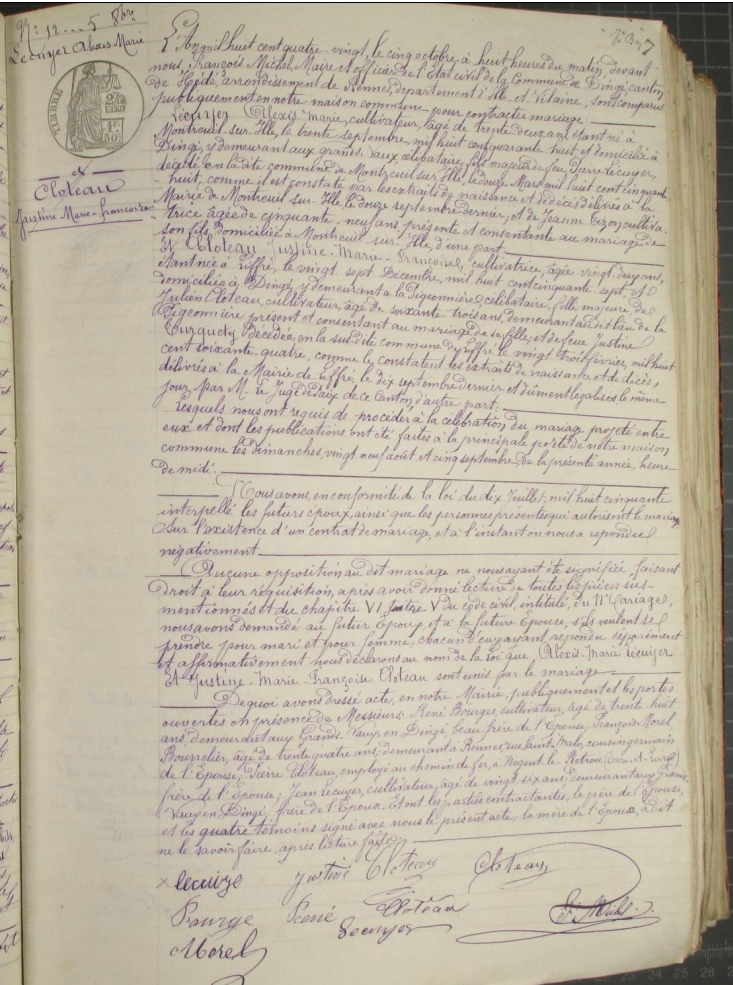 Nº 12 5 8bre
Lecuyer Alexis Marie
et
Cloteau
Justine Marie-Françoise
TIMBRE
7
L'An mil huit cent quatre-vingt, le cinq octobre, à huit heures du matin, devant
nous, François Michel, Maire et officier de l'Etat civil de la Commune de Dingé, canton
de Hédé, arrondissement de Rennes, département d'Ille et Vilaine, sont comparus
publiquement en notre maison commune pour contracter mariage.
Lecuyer Alexis Marie, cultivateur, âgé de trente deux ans étant né à
Montreuil sur Ille, le trente septembre, mil huit cent quarante huit et domicilié à
Dingé, y demeurant aux grands Vaux célibataire, fils majeur de feu Pierre Lecuyer,
décédé en la dite commune de Montreuil sur Ille, le douze Mars mil huit cent cinquante
huit, comme il est constaté par les extraits de naissance et de décès délivrés à la
Mairie de Montreuil sur Ille, le douze septembre dernier, et de Jeanne Tizon, cultiva-
trice, âgée de cinquante-neuf ans présente et consentante au mariage de
son fils, domiciliée à Montreuil-sur-Ille, d'une part.
Et Cloteau Justine-Marie-Françoise, cultivatrice, âgée vingt-deux ans,
étant née à Liffré, le vingt sept Décembre, mil huit cent cinquante sept, et
domiciliée à Dingé, y demeurant à la Pigeonnière célibataire, fille majeure de
Julien Cloteau, cultivateur, âgé de soixante trois ans, demeurant au dit lieu de la
Pigeonnière présent et consentant au mariage de sa fille, et de feue Justine
décédée en la sus-dite commune de Liffré le vingt trois février, mil huit
cent soixante-quatre, comme le constatent les extraits de naissance et de décès,
délivrés à la Mairie de Liffré, le dix septembre dernier et dûment légalisés le même
jour, par M. le Juge de Paix de ce Canton d'autre part.
Lesquels nous ont requis de procéder à la célébration du mariage projeté entre
eux et dont les publications ont été faites à la principale porte de notre maison
commune les dimanches, vingt neuf août et cinq septembre de la présente année, heure
de midi.
Nous avons, en conformité de la loi du dix Juillet, mil huit cinquante
interpellé les futurs époux, ainsi que les personnes présentes qui autorisent le mariage
sur l'existence d'un contrat de mariage, et à l'instant on nous a répondu
négativement.
Aucune opposition au dit mariage ne nous ayant été signifiée faisant
droit à leur réquisition, après avoir donné lecture de toutes les pièces sus-
mentionnés et du chapitre VI, titre V du code civil, intitulé, du Mariage,
nous avons demandé au futur Epoux et à la future Epouse, s'ils veulent se
prendre pour mari et pour femme chacun d'eux ayant répondu séparément
et affirmativement nous déclarons au nom de la Loi que Alexis-Marie Lecuyer
Et Justine-Marie-Françoise Cloteau sont unis par le mariage.
De quoi avons dressé acte, en notre Mairie, publiquement et les portes
ouvertes en présence de Messieurs René Bourge, cultivateur, âgé de trente huit
ans, demeurant aux Grands Vaux, en Dingé, beau frère de l'Epouse, François Morel
Bourrelier, âgé de trente quatre ans, demeurant à Rennes, rue Saint Malo, cousin germain
de l'Epouse; Pierre Cloteau, employé au chemin de fer, à Nogent le Rotrou
frère de l'Epouse; Jean Lecuyer, cultivateur, âgé de vingt six ans, demeurant aux grands
Vaux en Dingé, frère de l'Epoux. Et ont les parties contractantes, le père de l'épouse,
et les quatre témoins signé avec nous le présent acte, la mère de l'Epoux, a dit
ne le savoir faire après lecture faite.
lecuize Justine Cloteau Cloteau
Bourge René Cloteau
Lecuyer
Morel